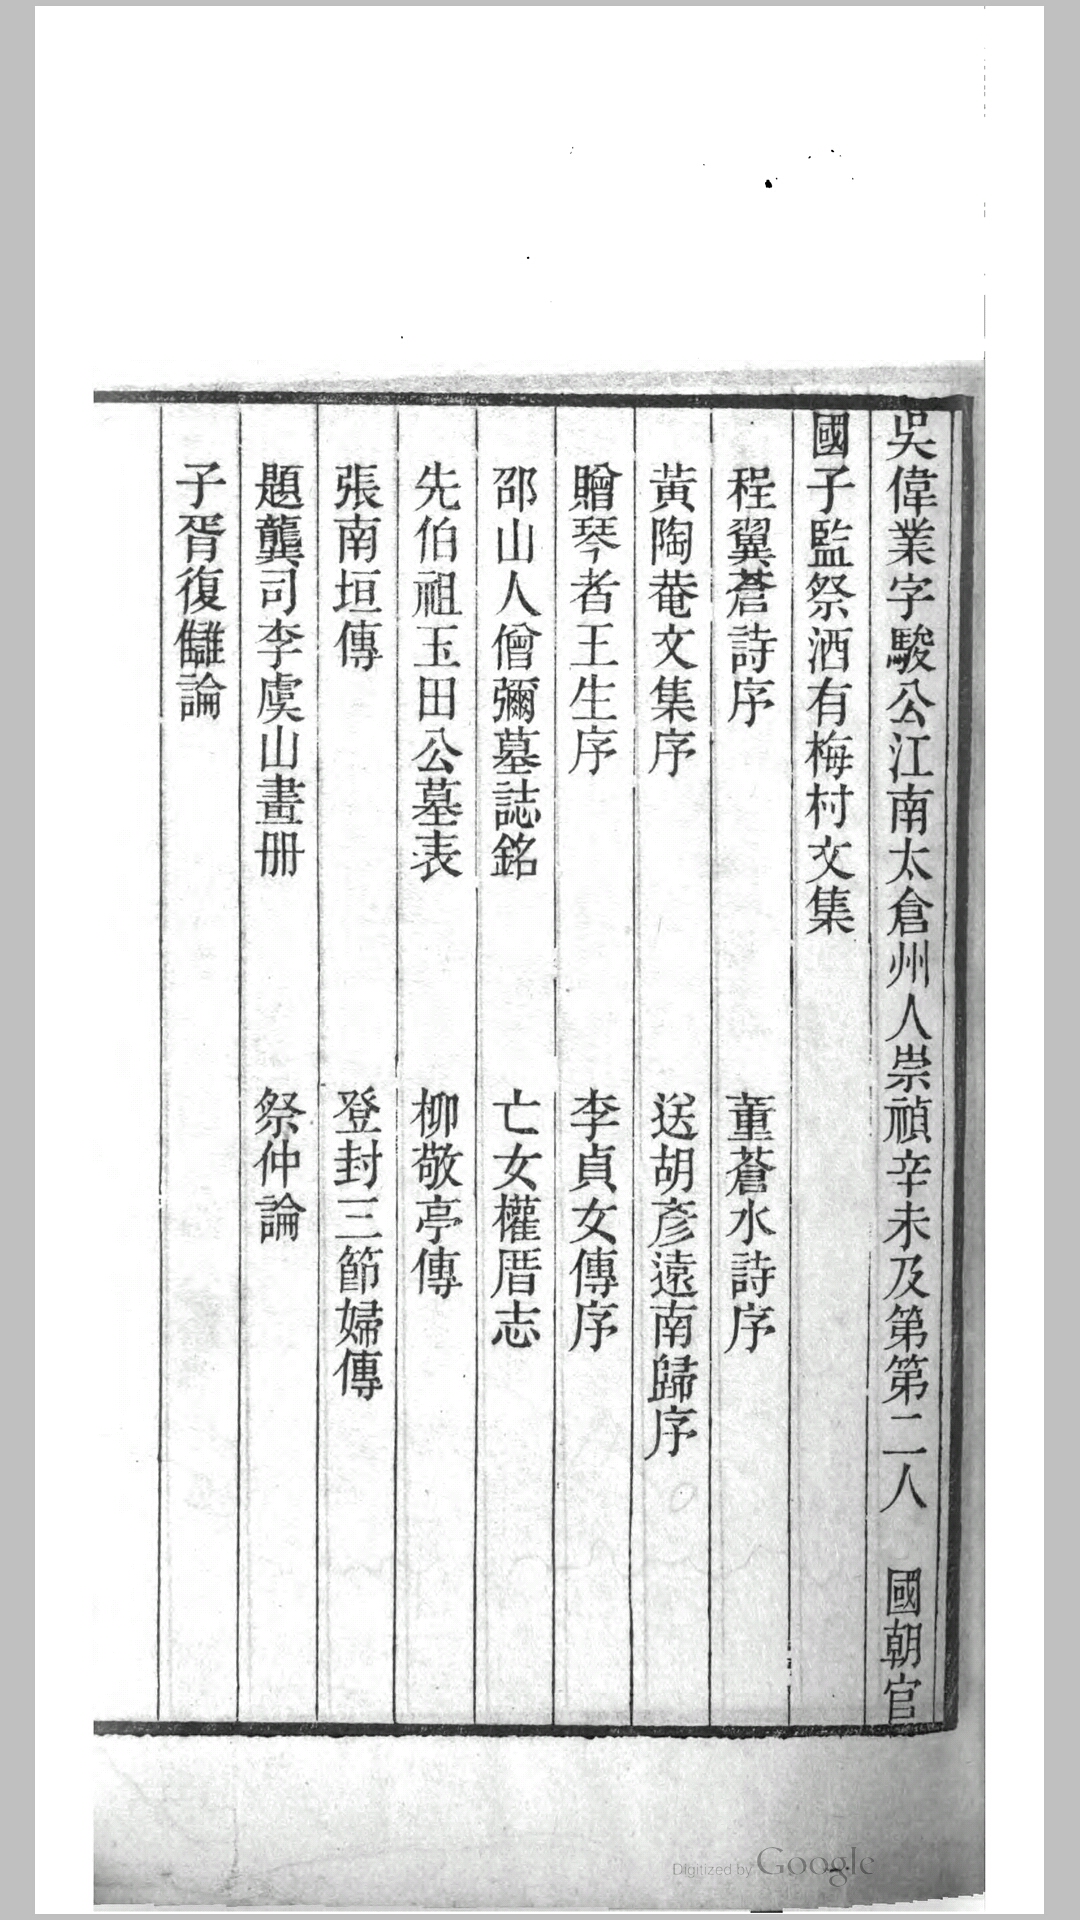 吳偉業字駿公江南太倉州人崇禎辛未及第第二人　國朝官
國子監祭酒有梅村文集
程翼蒼詩序　董蒼水詩序
黃陶菴文集序　送胡彥遠南歸序
贈琴者王生序　李貞女傳序
邵山人僧彌墓誌銘　亡女權厝志
先伯祖玉田公墓表　柳敬亭傳
張南垣傳　登封三節婦傳
題龔司李虞山畫册　祭仲論
子胥復讎論
Digitized by Google